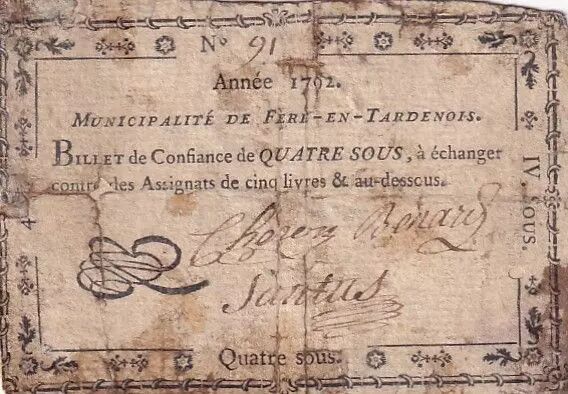 N° 91
Année 1792.
MUNICIPALITÉ DE FÈRE-EN-TARDENOIS.
BILLET de Confiance de QUATRE SOUS, à échanger
contre des Assignats de cinq livres & au-dessous.
4
IV. SOUS.
Quatre sous.